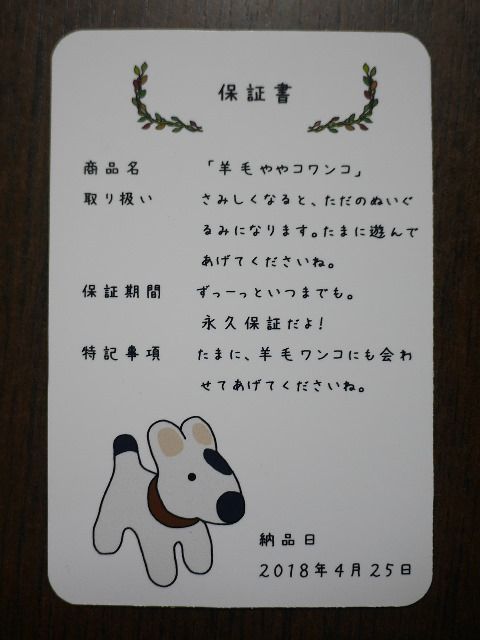 保証書
商品名 「羊毛ややコワンコ」
取り扱い さみしくなると、ただのぬいぐ
るみになります。たまに遊んで
あげてくださいね。
保証期間 ずっーっといつまでも。
永久保証だよ!
特記事項 たまに、羊毛ワンコにも会わ
せてあげてくださいね。
納品日
2018年4月25日